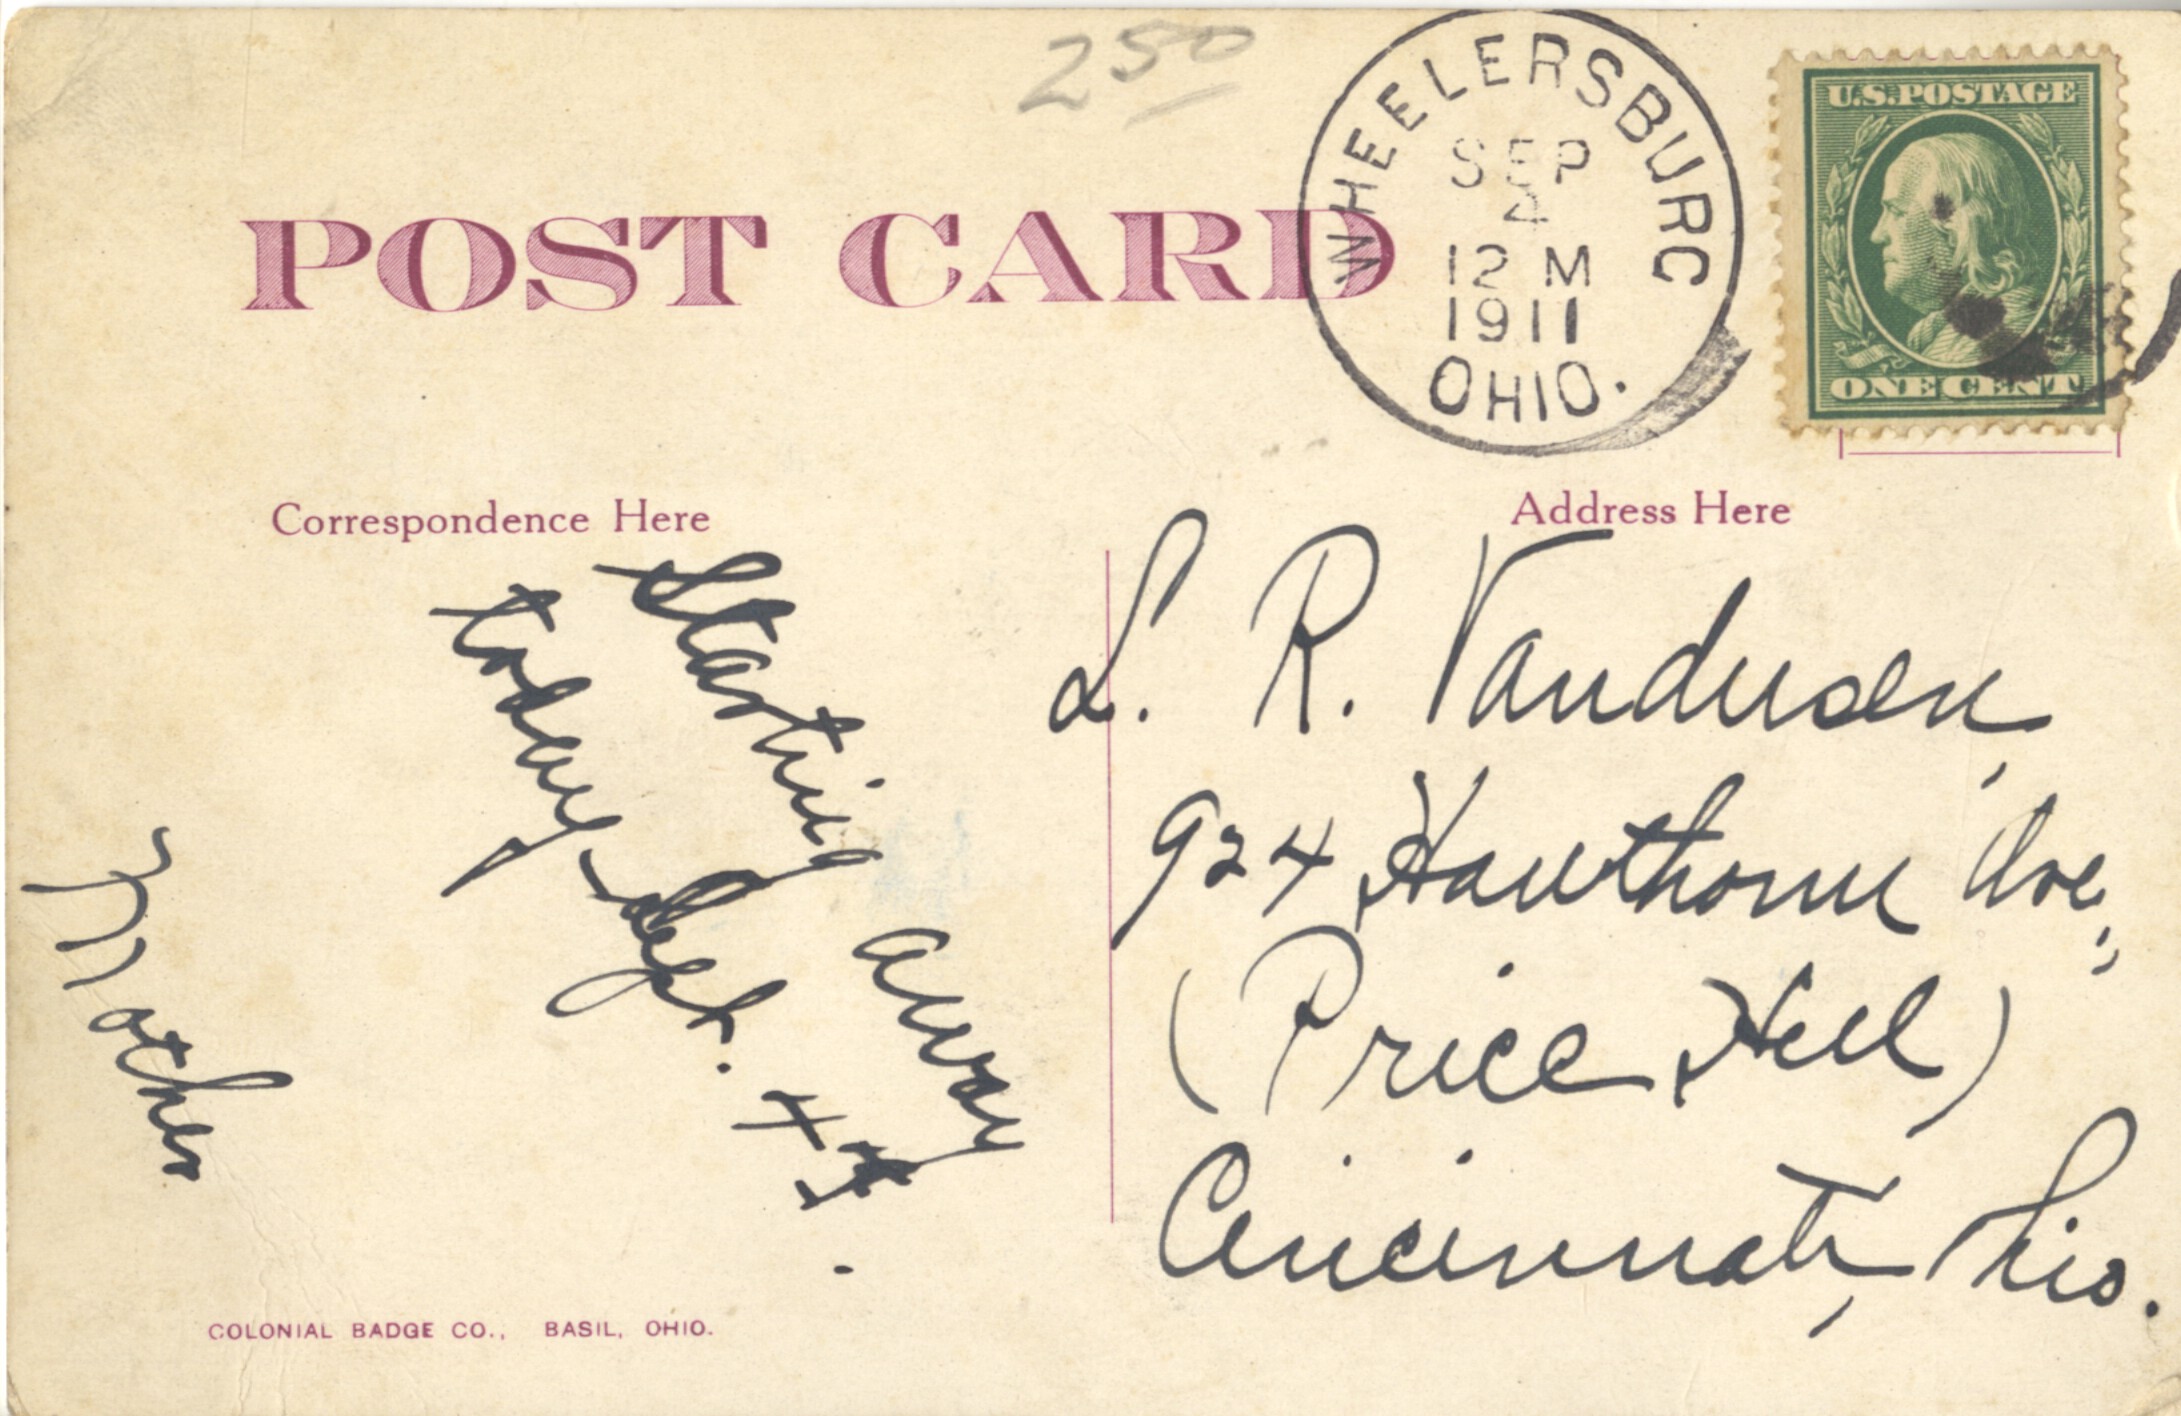 250
WHEELERSBURG
SEP
4
12 M
1911
OHIO.
U.S. POSTAGE
ONE CENT
POST CARD
Correspondence Here
Address Here
Starting away
today - Sept. 4
Mother
L. R. Vandusen,
924 Hawthorne Ave,
(Price Hill)
Cincinnati, Ohio.
COLONIAL BADGE CO., BASIL, OHIO.